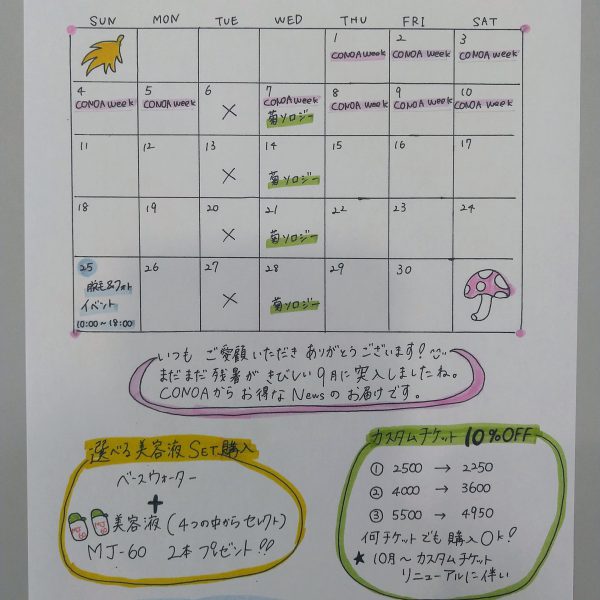 SUN MON TUE WED THU FRI SAT
1 2 3
CONOA week CONOA week CONOA week
4 5 6 7 8 9 10
CONOA week CONOA week × CONOA week CONOA week CONOA week CONOA week
菊ソロジー
11 12 13 14 15 16 17
× 菊ソロジー
18 19 20 21 22 23 24
× 菊ソロジー
25 26 27 28 29 30
脱毛&フォト × 菊ソロジー
イベント
10:00~18:00
いつも ご愛顧いただき ありがとうございます!
まだまだ残暑が きびしい 9月に突入しましたね。
CONOAから お得な Newsの お届けです。
選べる美容液 SET 購入
ベースウォーター
+
MJ-60 MJ-60 美容液 (4つの中からセレクト)
MJ-60 2本 プレゼント!!
カスタムチケット 10%OFF
① 2500 → 2250
② 4000 → 3600
③ 5500 → 4950
何チケットでも購入OK!
★ 10月~カスタムチケット
リニューアルに伴い